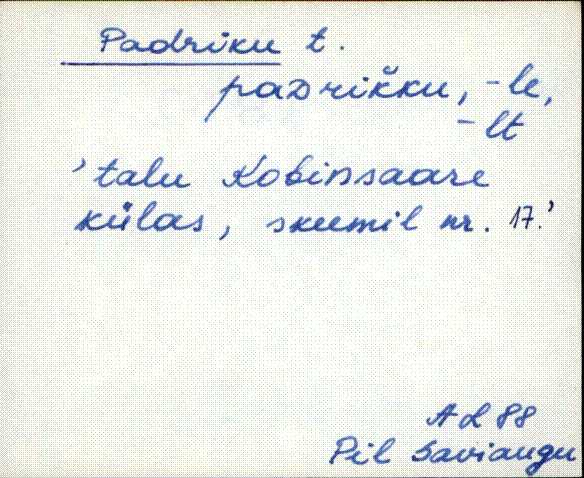 Padriku t.
padriкku, -le,
-lt
'talu Kobinsaare
külas, skeemil nr. 17.'
A L 88
Pil Saviaugu